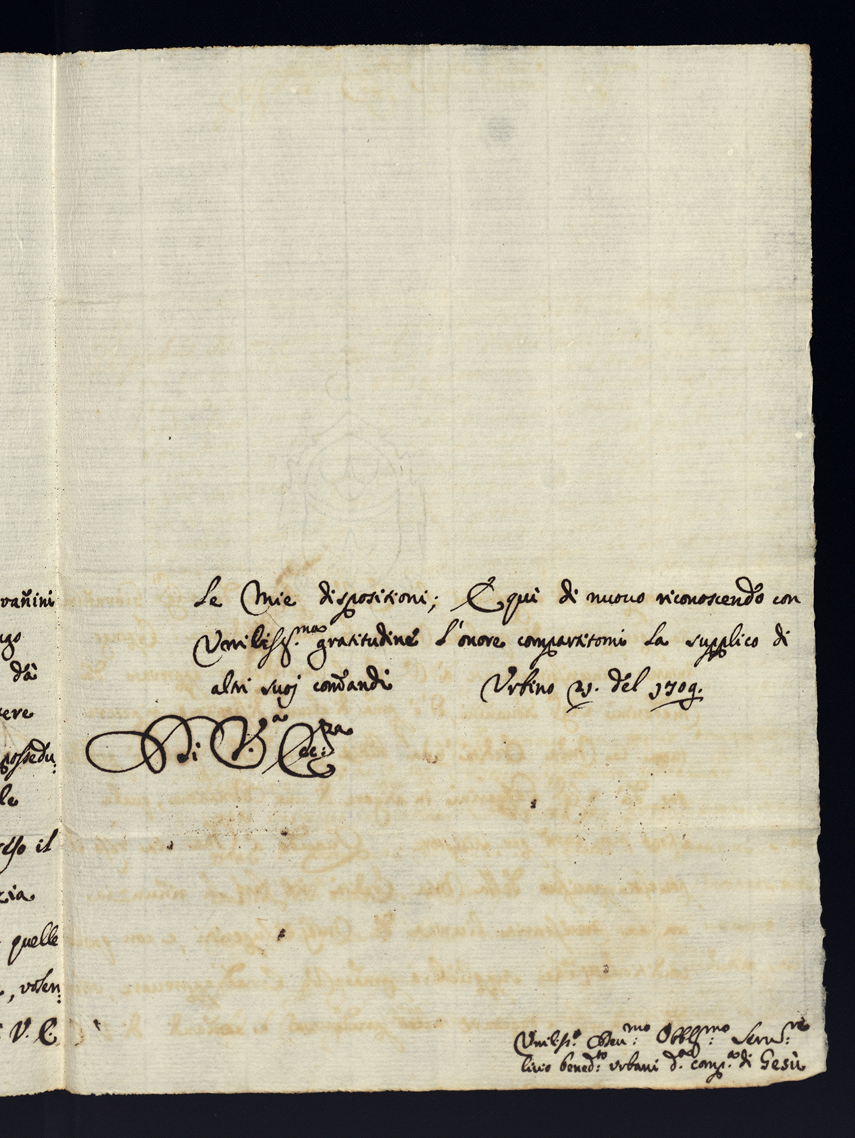 vañini
ugo
dà
tere
possedu:
le
esso il
zia
quelle
, volen:
V. E.
Le Mie dispositioni; E qui di nuovo riconoscendo con
Vmiliss:ma gratitudine l'onore compartitomi la supplico di
altri suoj comandi Vrbino 21. del 1709.
Di V.a Ecc:za
Vmiliss:o Deu:mo Obblig:mo Seru:re
livio bened:to Vrbani d.a comp:a di Gesù